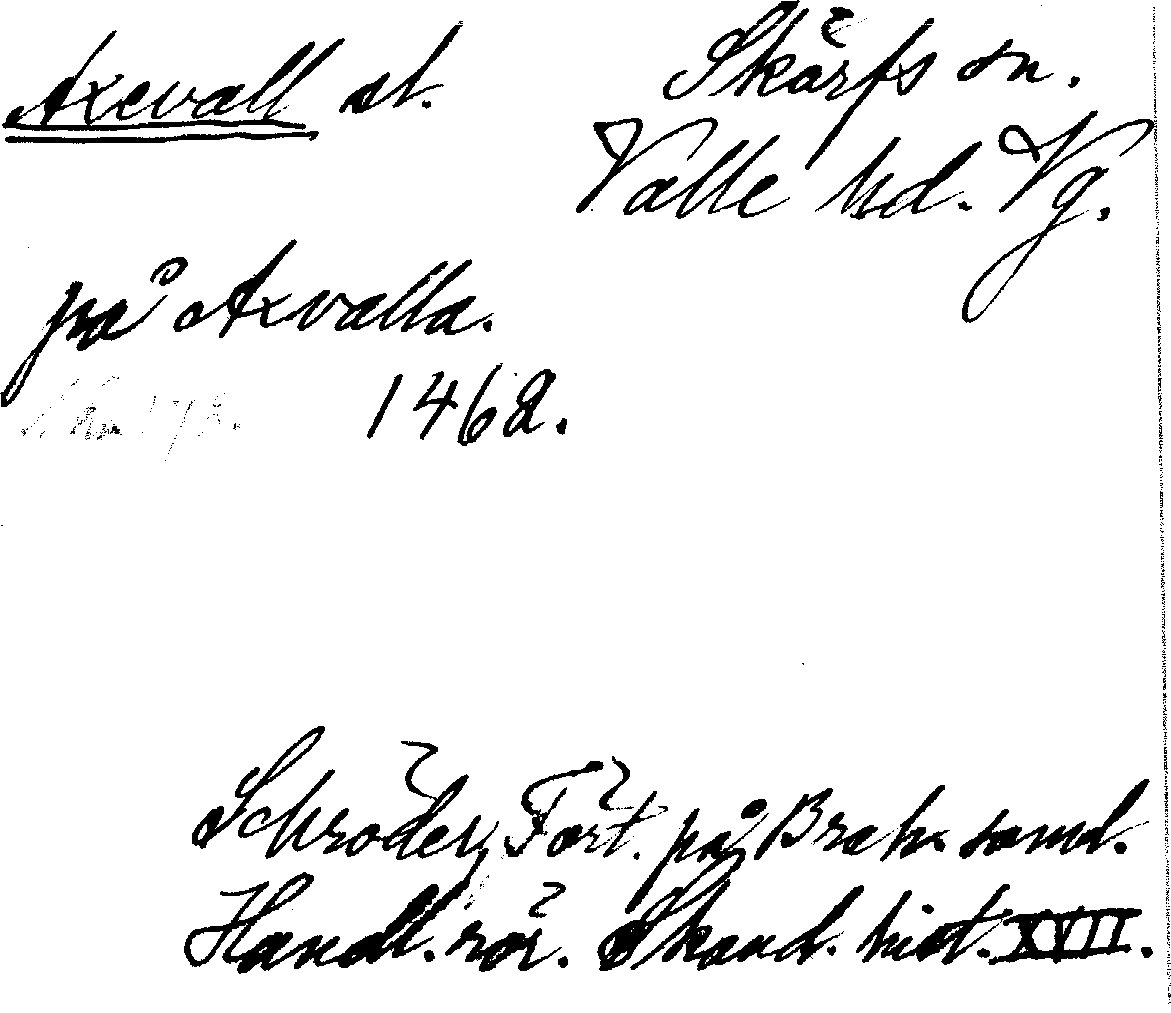 Axevall st. Skärfs sn.
Valle hd. Vg.
på Axvalla.
1462.
Schröder, Fört. på Brah. saml.
Handl. rör. Skand. hist. XVII.